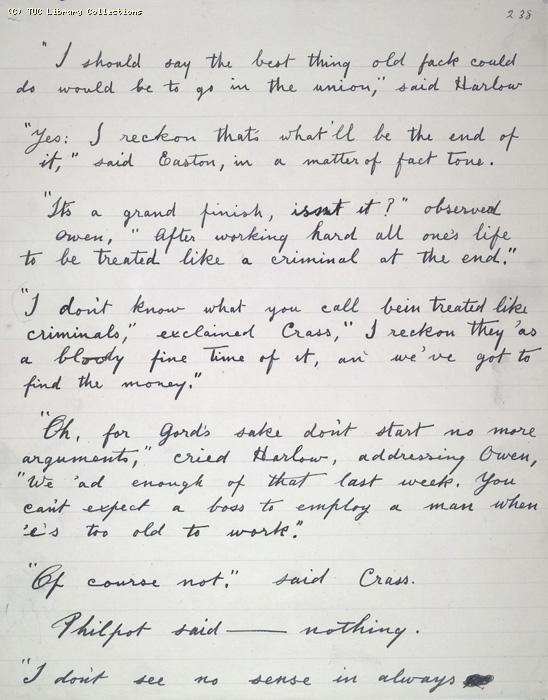 (C) TUC Library Collections
238
"I should say the best thing old Jack could
do would be to go in the union," said Harlow
"Yes: I reckon that's what'll be the end of
it," said Easton, in a matter of fact tone.
"Its a grand finish, isn't it?" observed
Owen, "After working hard all one's life
to be treated like a criminal at the end."
"I don't know what you call bein treated like
criminals," exclaimed Crass, "I reckon they 'as
a bloody fine time of it, an' we've got to
find the money."
"Oh, for Gord's sake don't start no more
arguments," cried Harlow, addressing Owen,
"We 'ad enough of that last week. You
can't expect a boss to employ a man when
'e's too old to work."
"Of course not." said Crass.
Philpot said — nothing.
"I don't see no sense in always